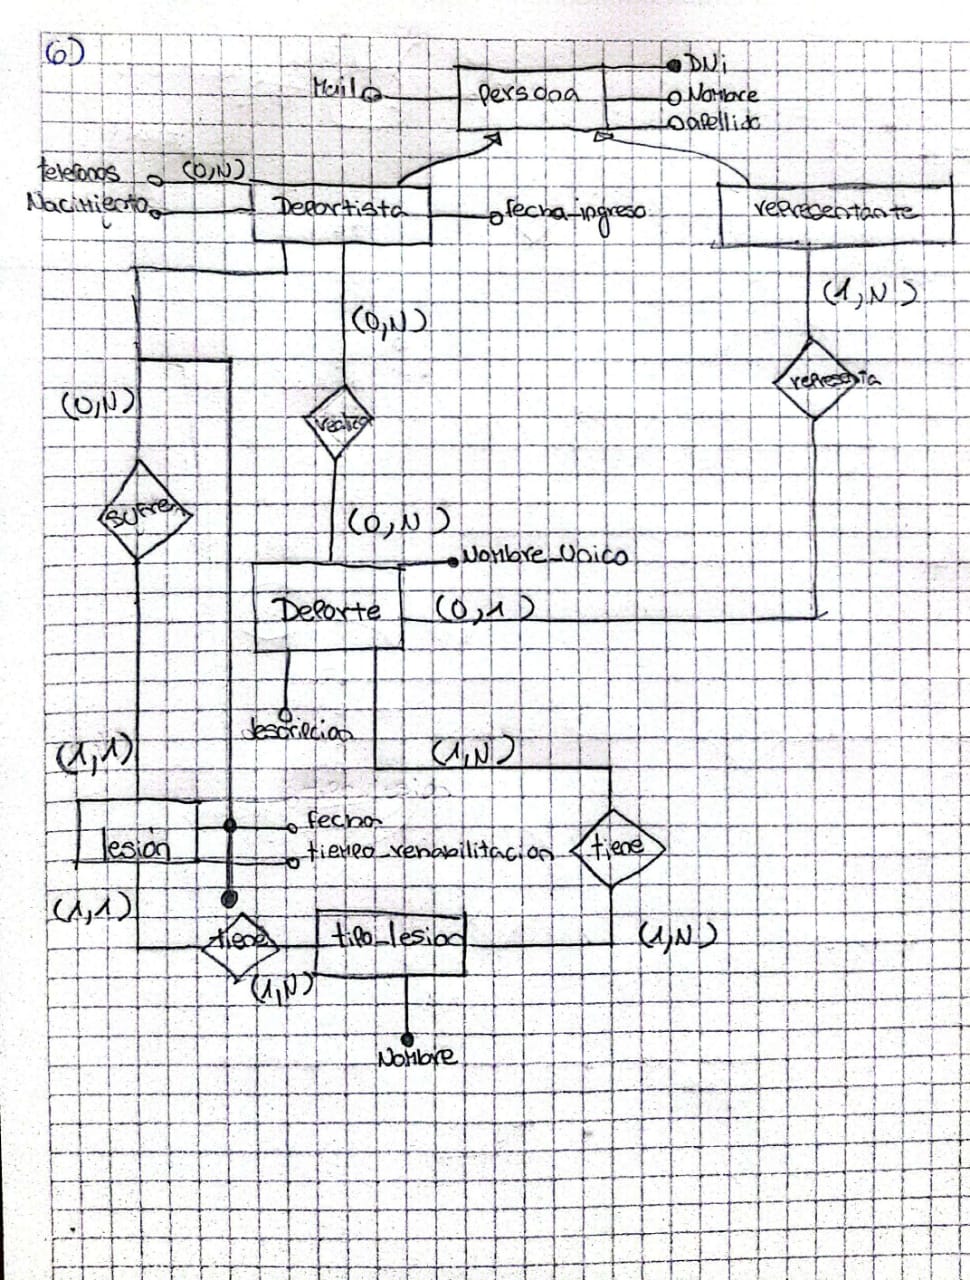 6)
DNi
Mail
persona
Nombre
apellido
telefonos
(0,N)
Nacimiento
Deportista
fecha_ingreso
representante
(1,N)
(0,N)
representa
(0,N)
realiza
sufre
(0,N)
Nombre_Unico
Deporte
(0,1)
descripcion
(1,1)
(1,N)
fecha
lesión
tiempo_rehabilitacion
tiene
(1,1)
tiene
tipo_lesion
(1,N)
(1,N)
Nombre